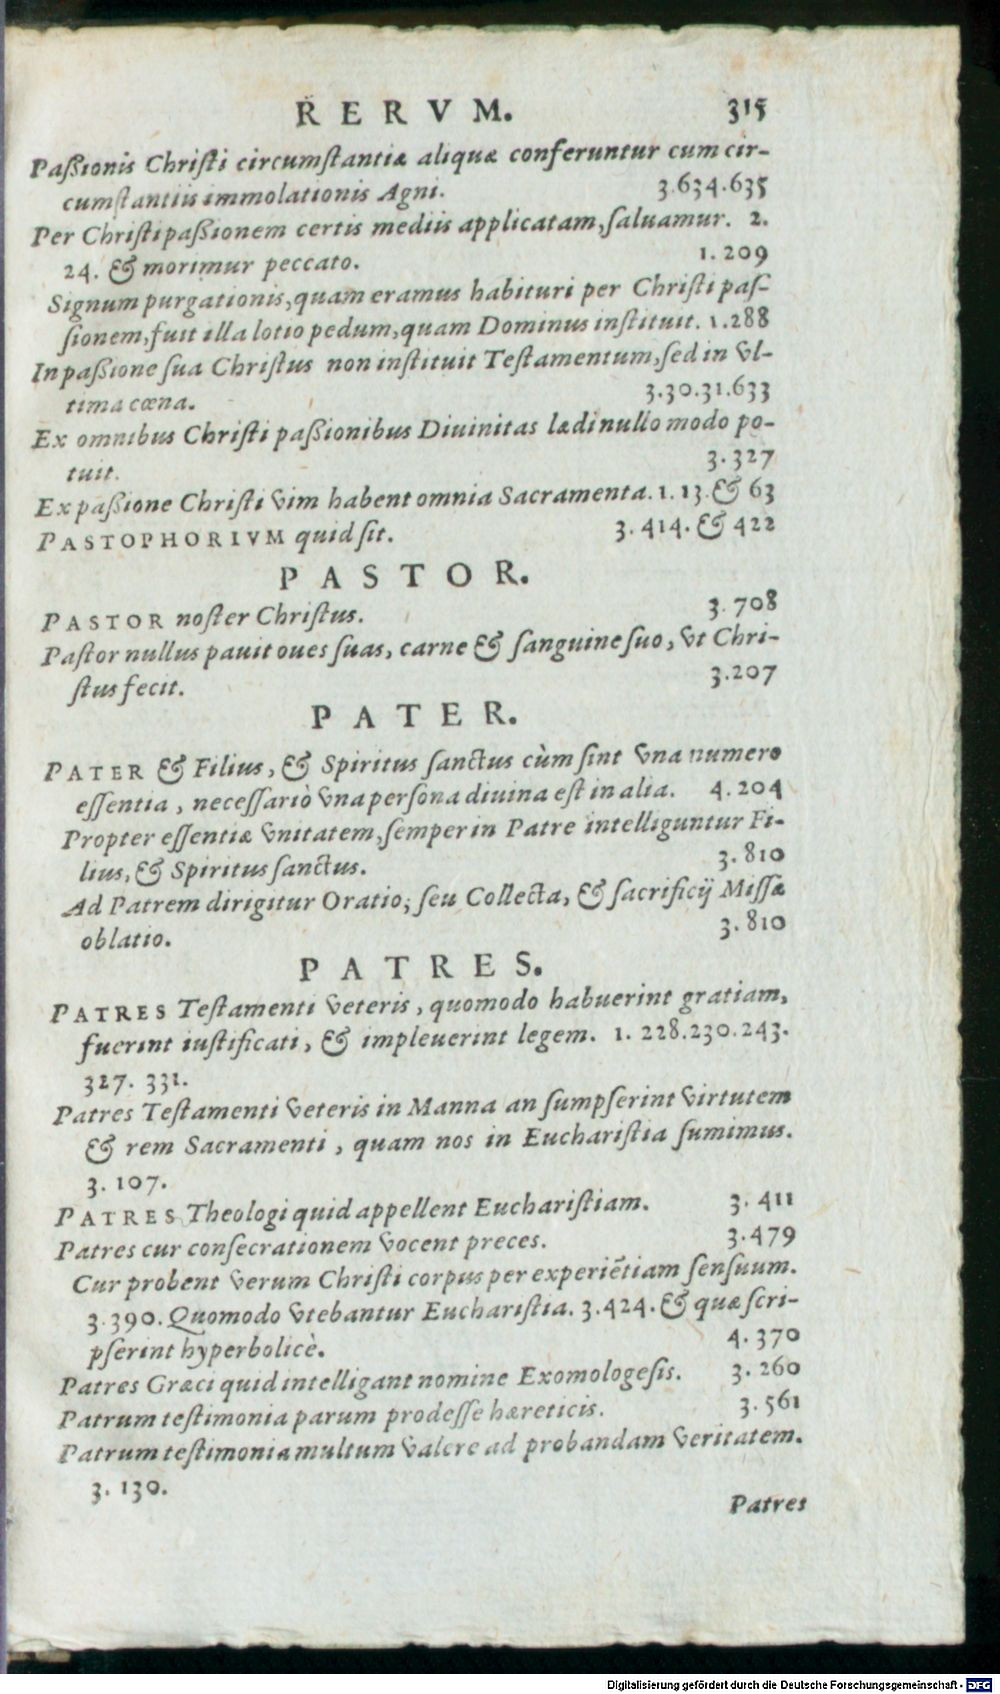 RERVM. 315
Paßionis Christi circumstantiæ aliquæ conferuntur cum cir-
cumstantiis immolationis Agni. 3.634.635
Per Christi paßionem certis mediis applicatam, saluamur. 2.
24. & morimur peccato. 1.209
Signum purgationis, quam eramus habituri per Christi pas-
sionem, fuit illa lotio pedum, quam Dominus instituit. 1.288
In paßione sua Christus non instituit Testamentum, sed in vl-
tima cœna. 3.30.31.633
Ex omnibus Christi paßionibus Diuinitas lædi nullo modo po-
tuit. 3.327
Ex paßione Christi vim habent omnia Sacramenta. 1. 13. & 63
PASTOPHORIVM quid sit. 3. 414. & 422
PASTOR.
PASTOR noster Christus. 3. 708
Pastor nullus pauit oues suas, carne & sanguine suo, vt Chri-
stus fecit. 3.207
PATER.
PATER & Filius, & Spiritus sanctus cùm sint vna numero
essentia, necessariò vna persona diuina est in alia. 4. 204
Propter essentiæ vnitatem, semper in Patre intelliguntur Fi-
lius, & Spiritus sanctus. 3. 810
Ad Patrem dirigitur Oratio, seu Collecta, & sacrificij Missæ
oblatio. 3. 810
PATRES.
PATRES Testamenti veteris, quomodo habuerint gratiam,
fuerint iustificati, & impleuerint legem. 1. 228.230.243.
327. 331.
Patres Testamenti veteris in Manna an sumpserint virtutem
& rem Sacramenti, quam nos in Eucharistia sumimus.
3. 107.
PATRES Theologi quid appellent Eucharistiam. 3. 411
Patres cur consecrationem vocent preces. 3.479
Cur probent verum Christi corpus per experiẽtiam sensuum.
3.390. Quomodo vtebantur Eucharistia. 3.424. & quæ scri-
pserint hyperbolicè. 4. 370
Patres Græci quid intelligant nomine Exomologesis. 3. 260
Patrum testimonia parum prodesse hæreticis. 3. 561
Patrum testimonia multum valere ad probandam veritatem.
3. 130.
Patres
Digitalisierung gefördert durch die Deutsche Forschungsgemeinschaft - DFG